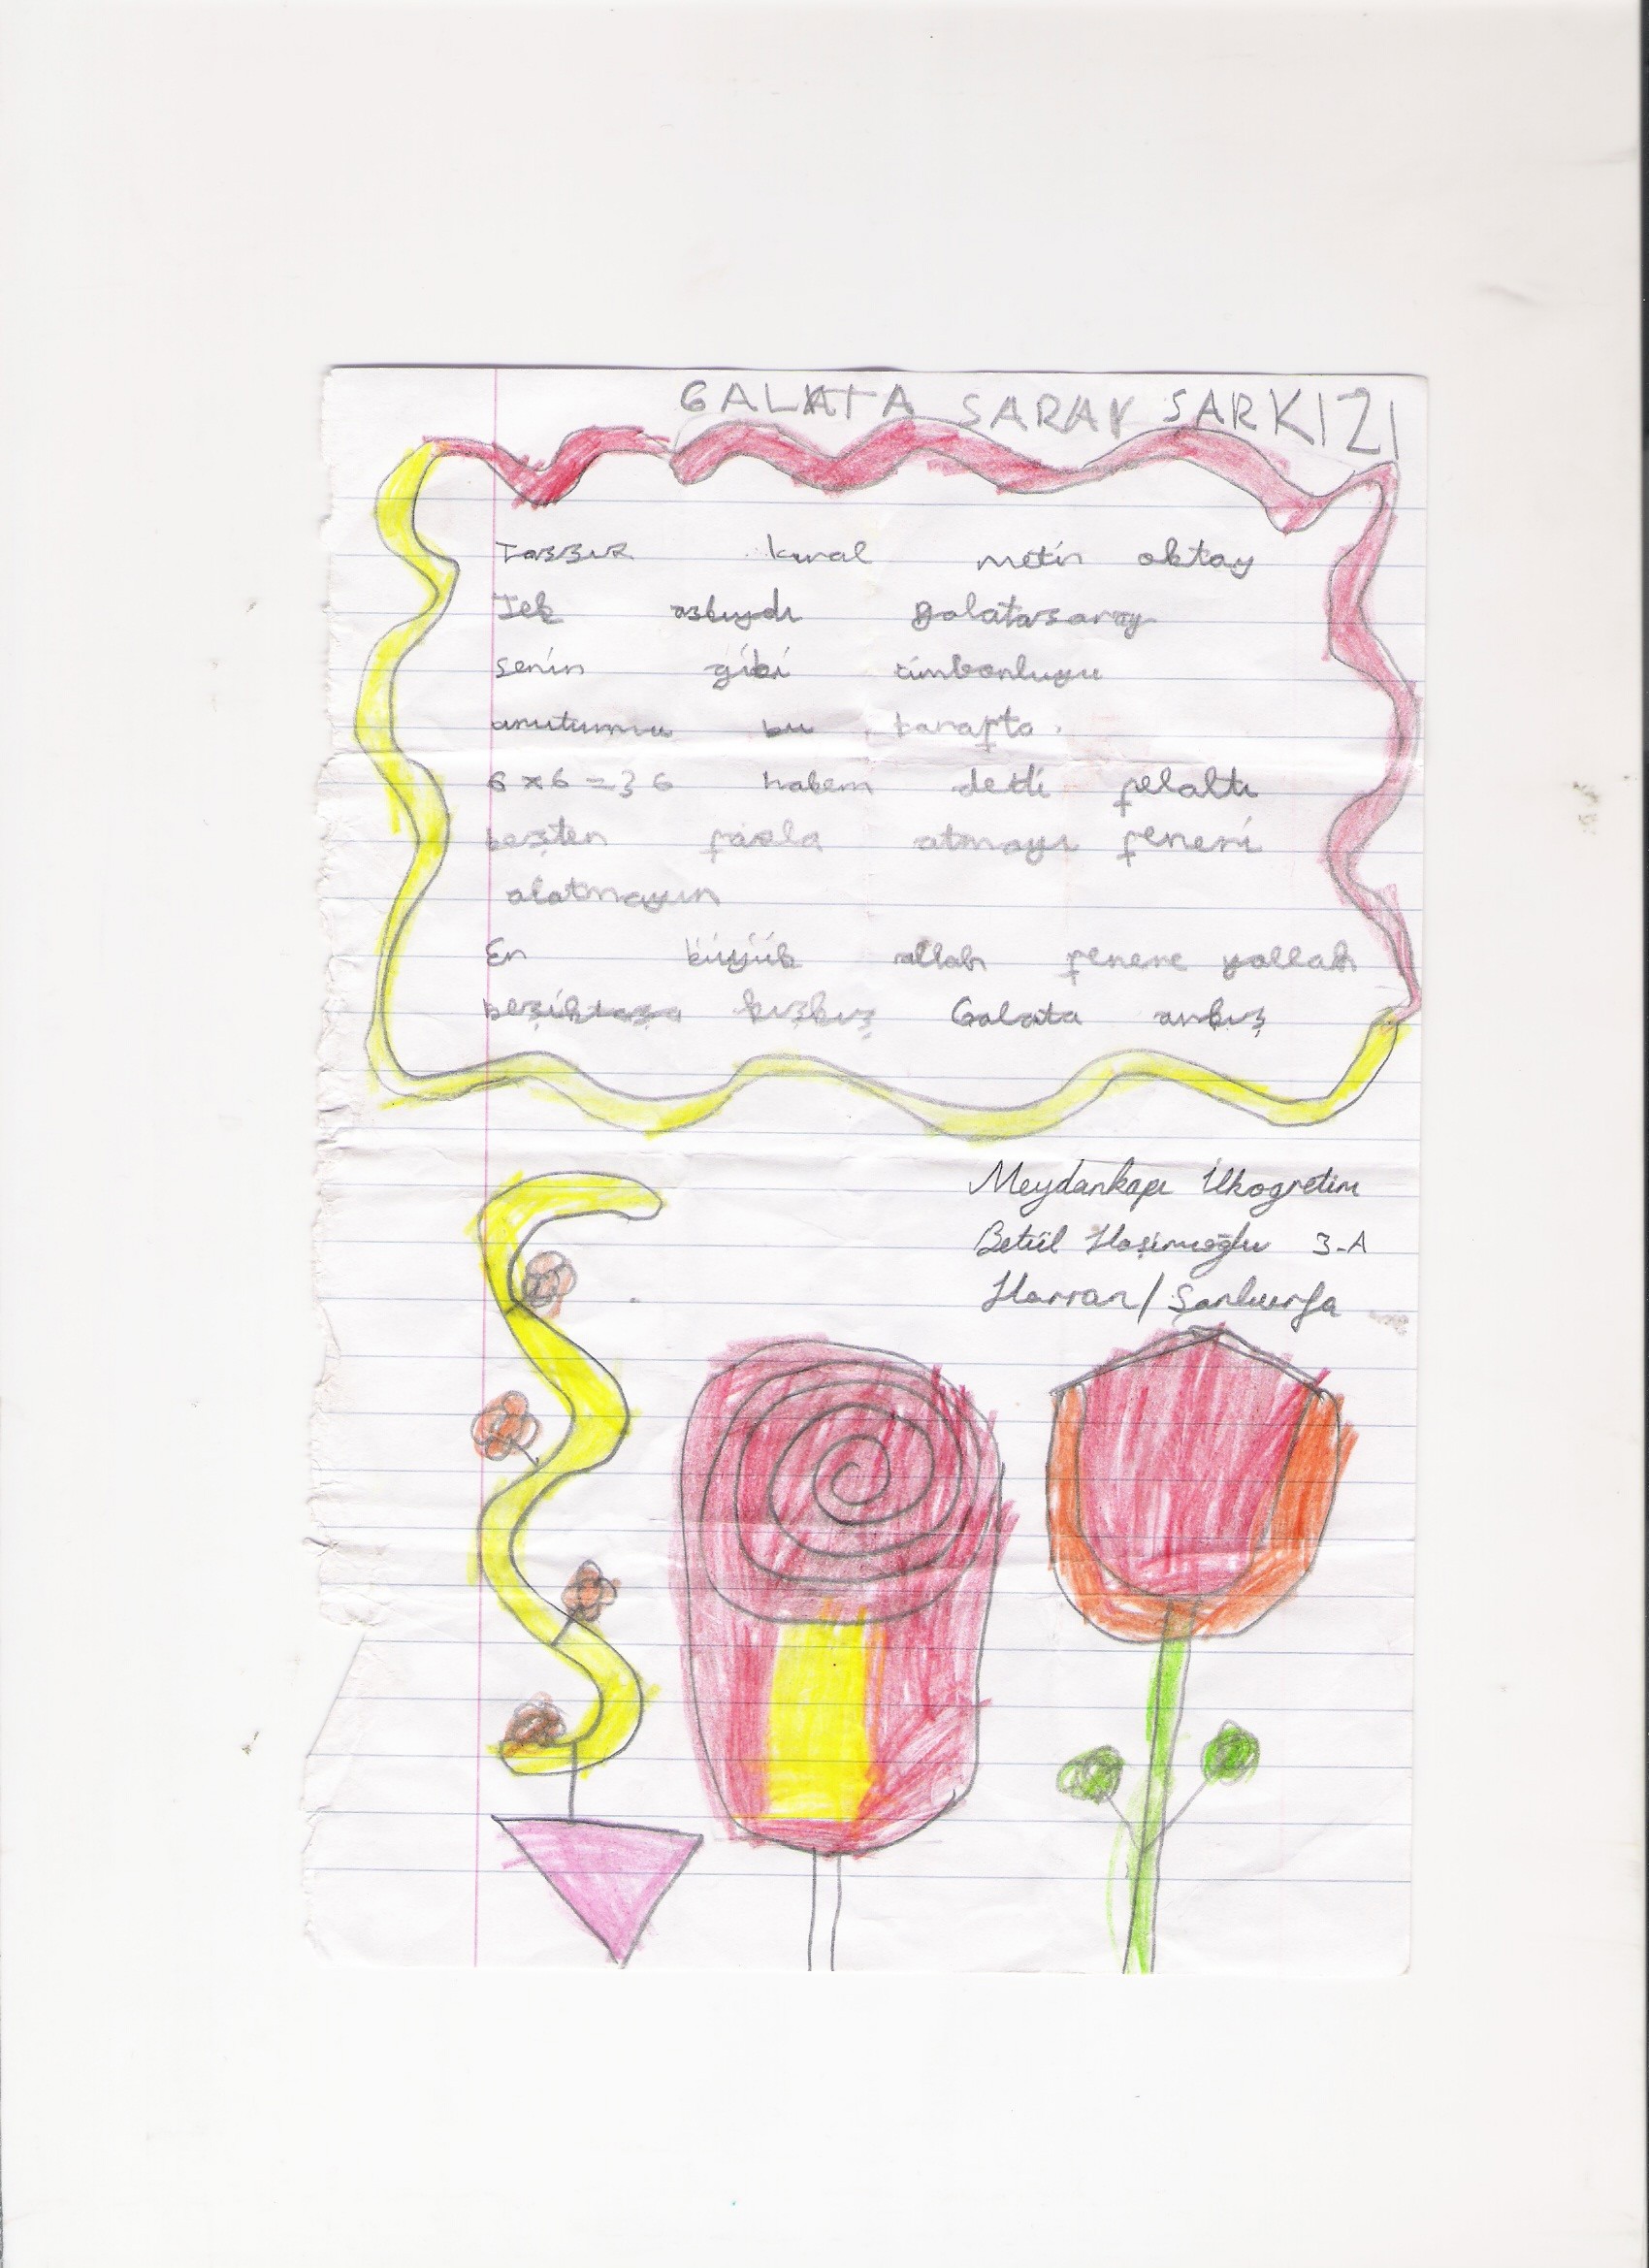 GALATA SARAY ŞARKIZI
kıral metin oktay
Tek askıydı galatasaray
senin gibi cimbonluyu
unutumu bu tarafta.
6 x 6 = 36 hakem detli pelaltı
beşten fazla atmayı feneri
alatmayın
En büyük allah fenere yallah
beşiktaşa kışkış Galata
Meydankapı İlkogretim
Betül Haşimoğlu 3-A
Harran/Şanlıurfa